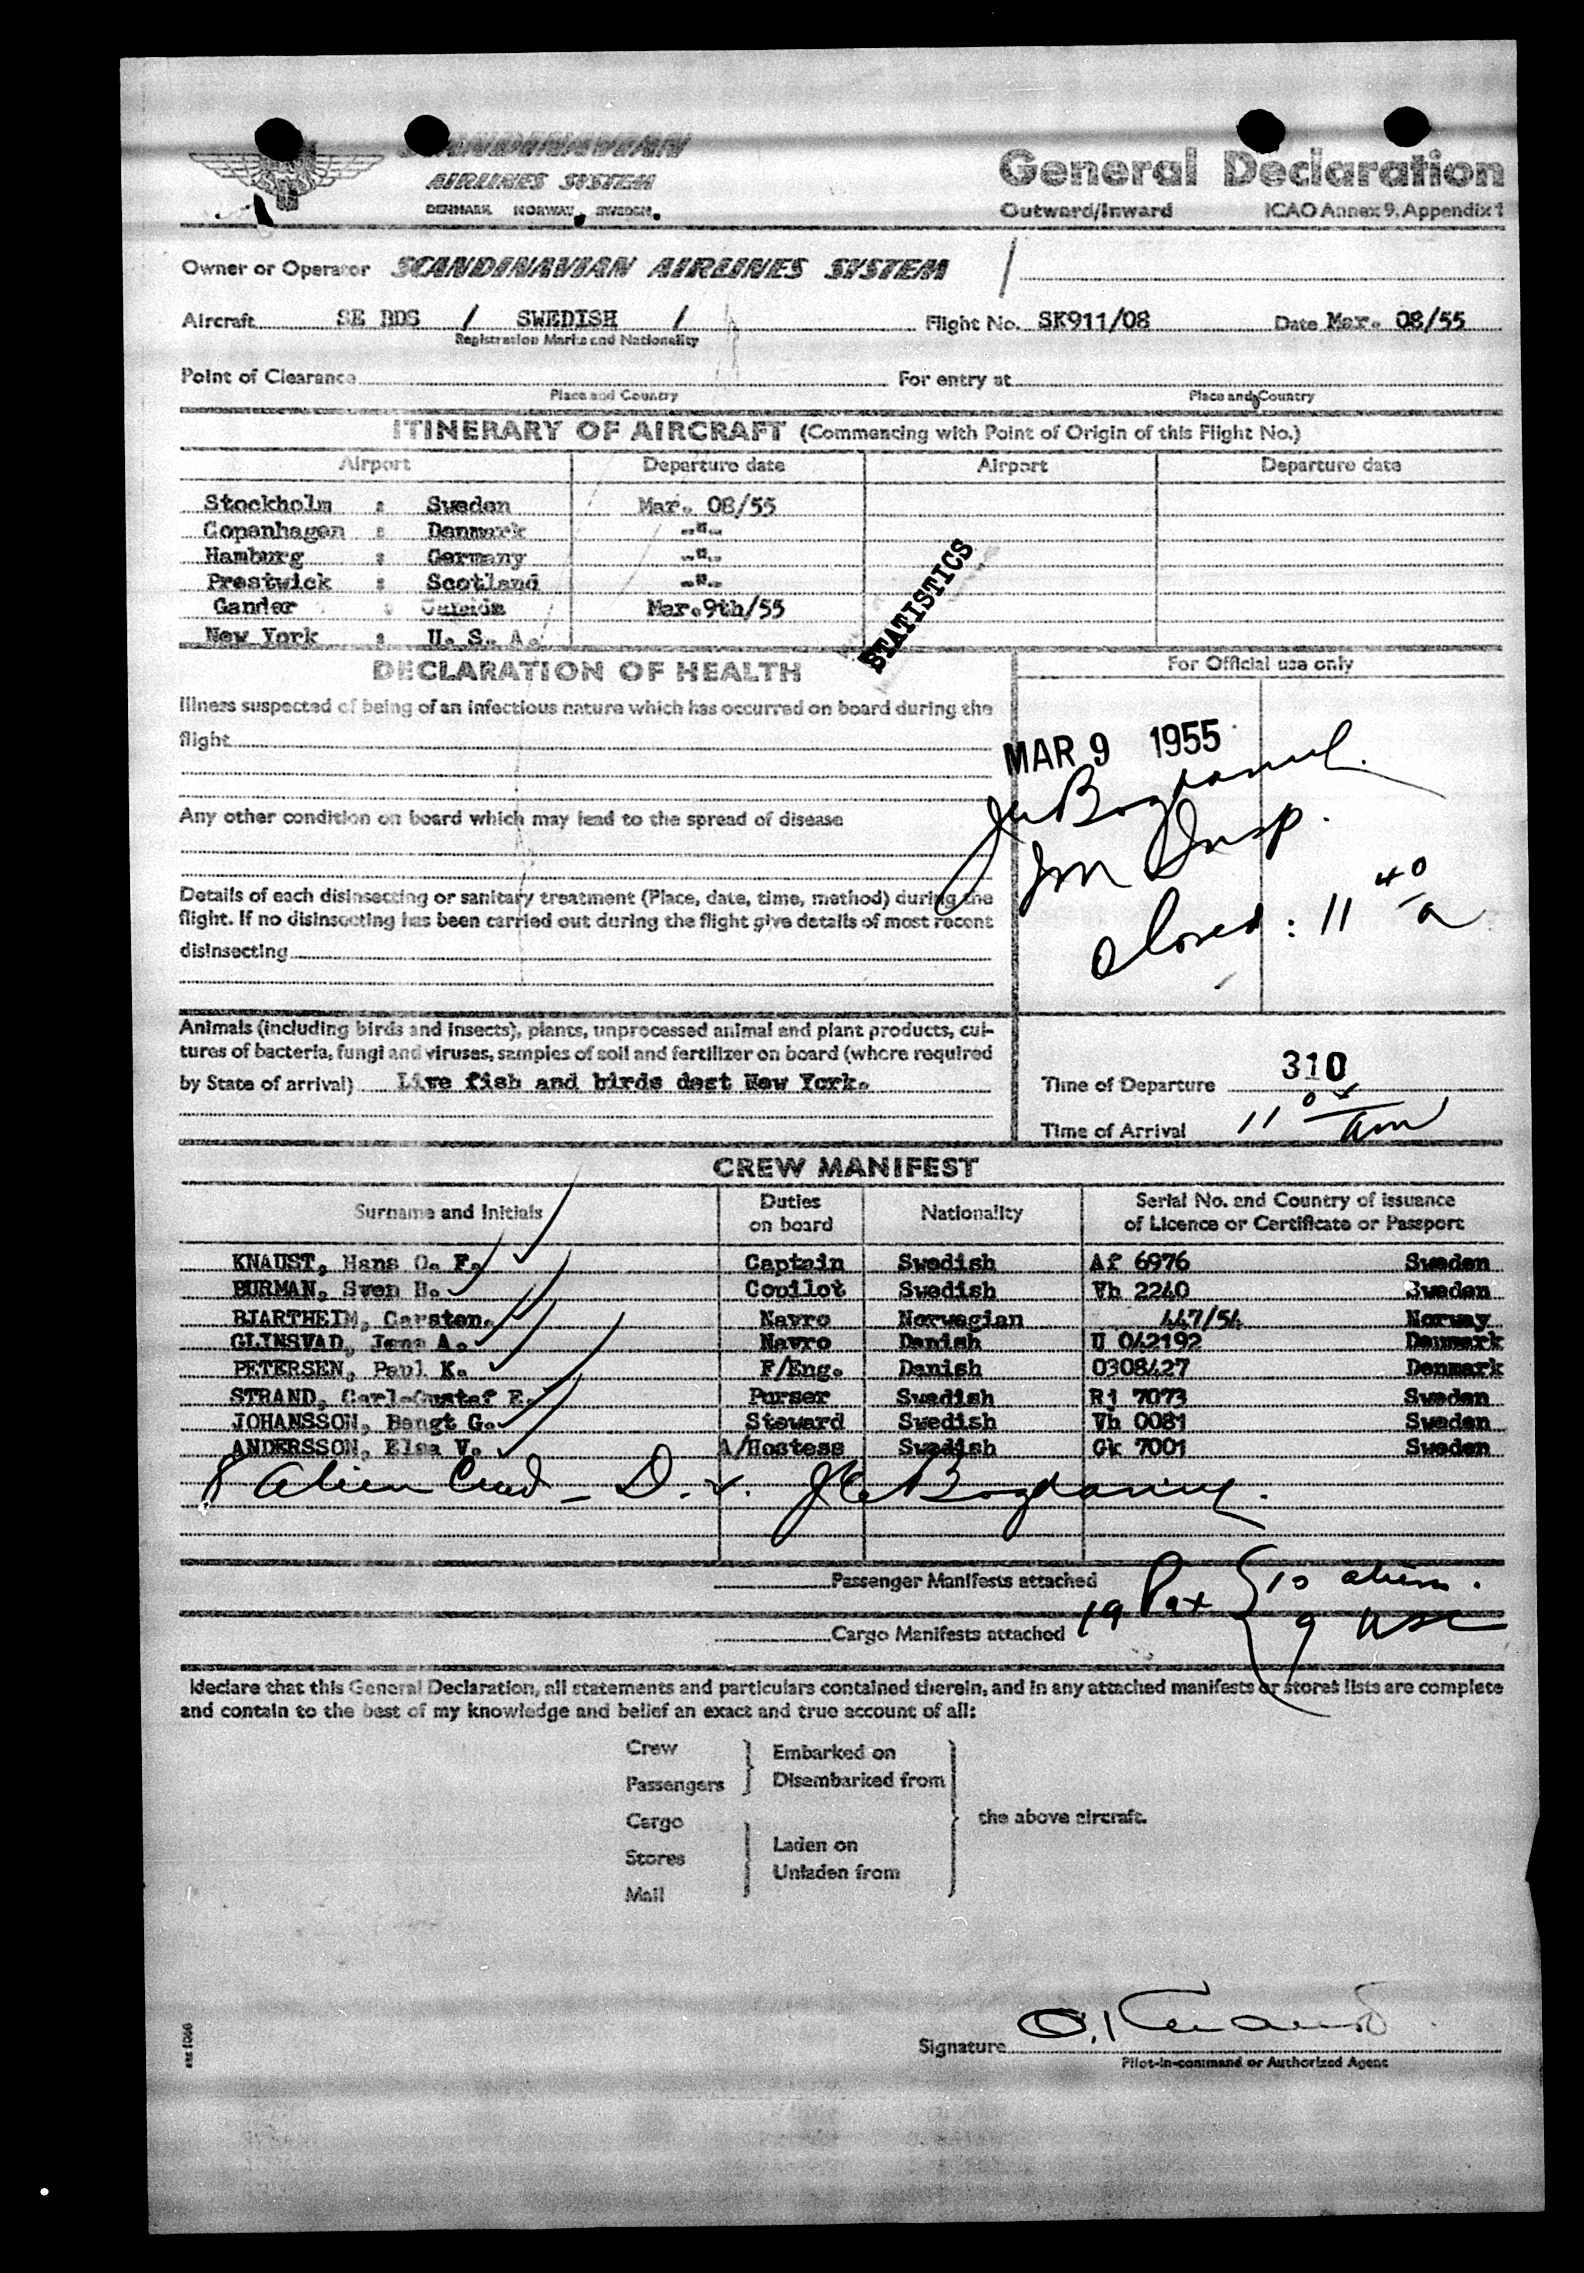 SCANDINAVIAN
AIRLINES SYSTEM
DENMARK NORWAY SWEDEN
General Declaration
Outward/Inward ICAO Annex 9, Appendix 1
Owner or Operator SCANDINAVIAN AIRLINES SYSTEM /
Aircraft SE BDS / SWEDISH / Flight No. SK911/08 Date Mar. 08/55
Registration Marks and Nationality
Point of Clearance For entry at
Place and Country Place and Country
ITINERARY OF AIRCRAFT (Commencing with Point of Origin of this Flight No.)
Airport Departure date Airport Departure date
Stockholm : Sweden Mar. 08/55
Copenhagen : Denmark -"-
Hamburg : Germany -"-
Prestwick : Scotland -"-
Gander : Canada Mar.9th/55
New York : U. S. A.
STATISTICS
DECLARATION OF HEALTH For Official use only
Illness suspected of being of an infectious nature which has occurred on board during the
flight
MAR 9 1955
Any other condition on board which may lead to the spread of disease
Im Insp.
Details of each disinsecting or sanitary treatment (Place, date, time, method) during the
flight. If no disinsecting has been carried out during the flight give details of most recent
disinsecting
Closed : 11 40 a
Animals (including birds and insects), plants, unprocessed animal and plant products, cul-
tures of bacteria, fungi and viruses, samples of soil and fertilizer on board (where required
by State of arrival) Live fish and birds dest New York.
Time of Departure 310
Time of Arrival 11 05 am
CREW MANIFEST
Surname and Initials Duties on board Nationality Serial No. and Country of issuance of Licence or Certificate or Passport
KNAUST, Hans O. F. Captain Swedish Af 6976 Sweden
BURMAN, Sven H. Copilot Swedish Vh 2240 Sweden
BJARTHEIM, Carsten. Navro Norwegian 447/54 Norway
GLINSVAD, Jens A. Navro Danish U 042192 Denmark
PETERSEN, Paul K. F/Eng. Danish 0308427 Denmark
STRAND, Carl-Gustaf E. Purser Swedish Rj 7073 Sweden
JOHANSSON, Bengt G. Steward Swedish Vh 0081 Sweden
ANDERSSON, Elsa V. A/Hostess Swedish Gk 7001 Sweden
8 alien Crew
Passenger Manifests attached
19 Pax { 10 aliens.
9 USC
Cargo Manifests attached
I declare that this General Declaration, all statements and particulars contained therein, and in any attached manifests or stores lists are complete
and contain to the best of my knowledge and belief an exact and true account of all:
Crew
Passengers
Embarked on
Disembarked from
Cargo
Stores
Mail
Laden on
Unladen from
the above aircraft.
Signature
Pilot-in-command or Authorized Agent